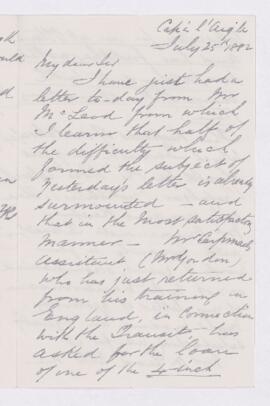 Cap à l'Aigle
July 25th 1882
My dear Sir
I have just had a
letter to-day from Mr
McLeod from which
I learn that half of
the difficulty which
formed the subject of
yesterday's letter is already
surmounted - and
that in the most satisfactory
manner - Mr Carpmael's
assistant (Mr Gordon)
who has just returned
from his training in
England, in connection
with the Transit - has
asked for the loan
of one of the 4 inch